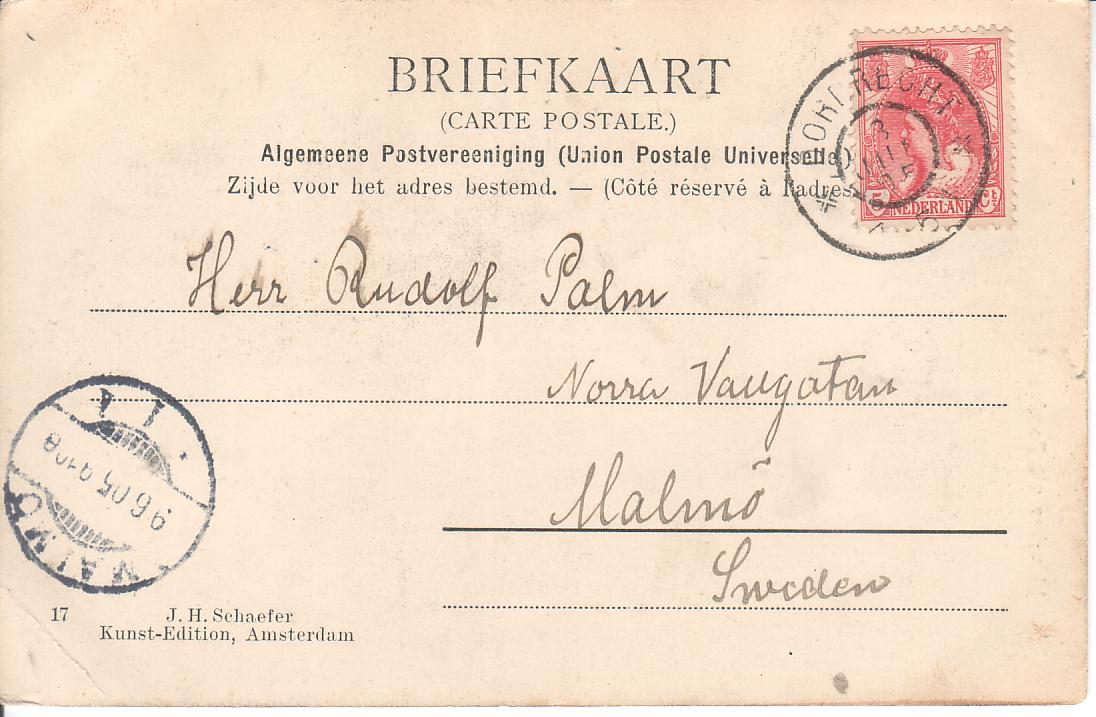 BRIEFKAART
(CARTE POSTALE.)
Algemeene Postvereeniging (Union Postale Universelle)
Zijde voor het adres bestemd. — (Côté réservé à l'adres
DORDRECHT
5 Ct NEDERLAND
Herr Rudolf Palm
Norra Vaugatan
Malmö
Sweden
MALMÖ
9 6 05
17
J. H. Schaefer
Kunst-Edition, Amsterdam